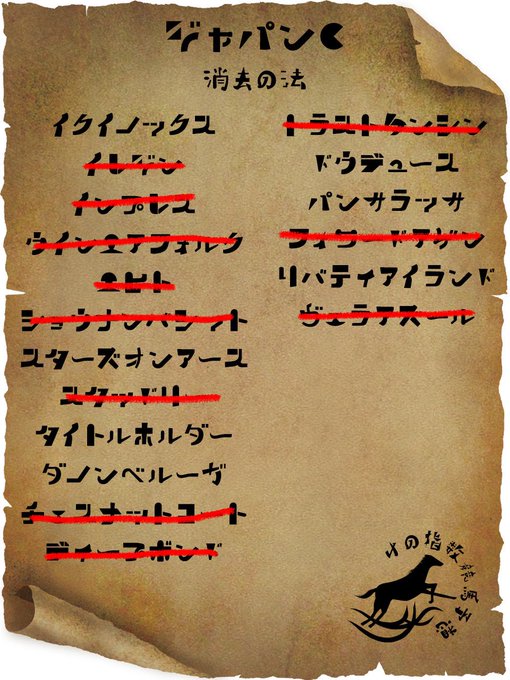 ジャパンC
消去の法
イクイノックス
イレジン
インプレス
ウインエアフォルク
エヒト
ショウナンバシット
スターズオンアース
スタッドリー
タイトルホルダー
ダノンベルーガ
チェスナットコート
ディープボンド
トラストケンシン
ドウデュース
パンサラッサ
フォワードアゲン
リバティアイランド
ヴェラアズール
の指数競馬予想